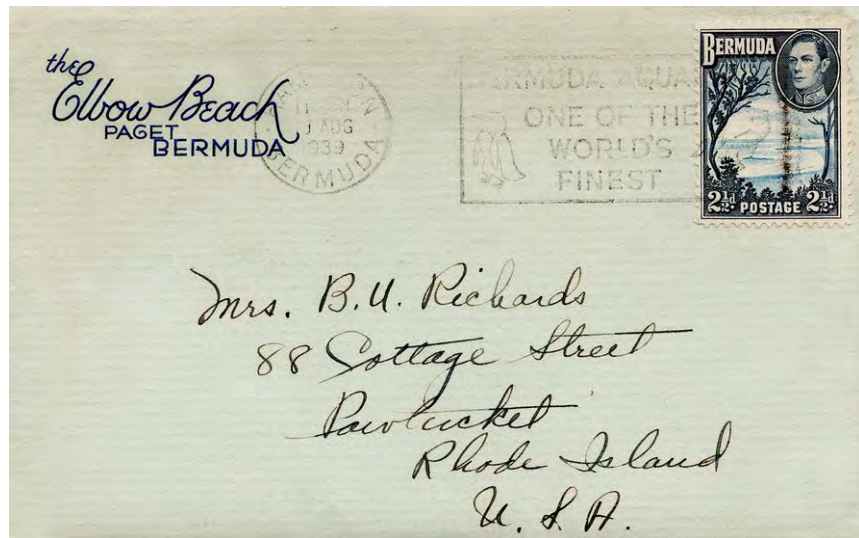 the
Elbow Beach
PAGET
BERMUDA
HAMILTON
AUG
1939
BERMUDA
BERMUDA AQUA
ONE OF THE
WORLD'S
FINEST
BERMUDA
2½d POSTAGE 2½d
Mrs. B.U. Richards
88 Cottage Street
Pawtucket
Rhode Island
U.S.A.